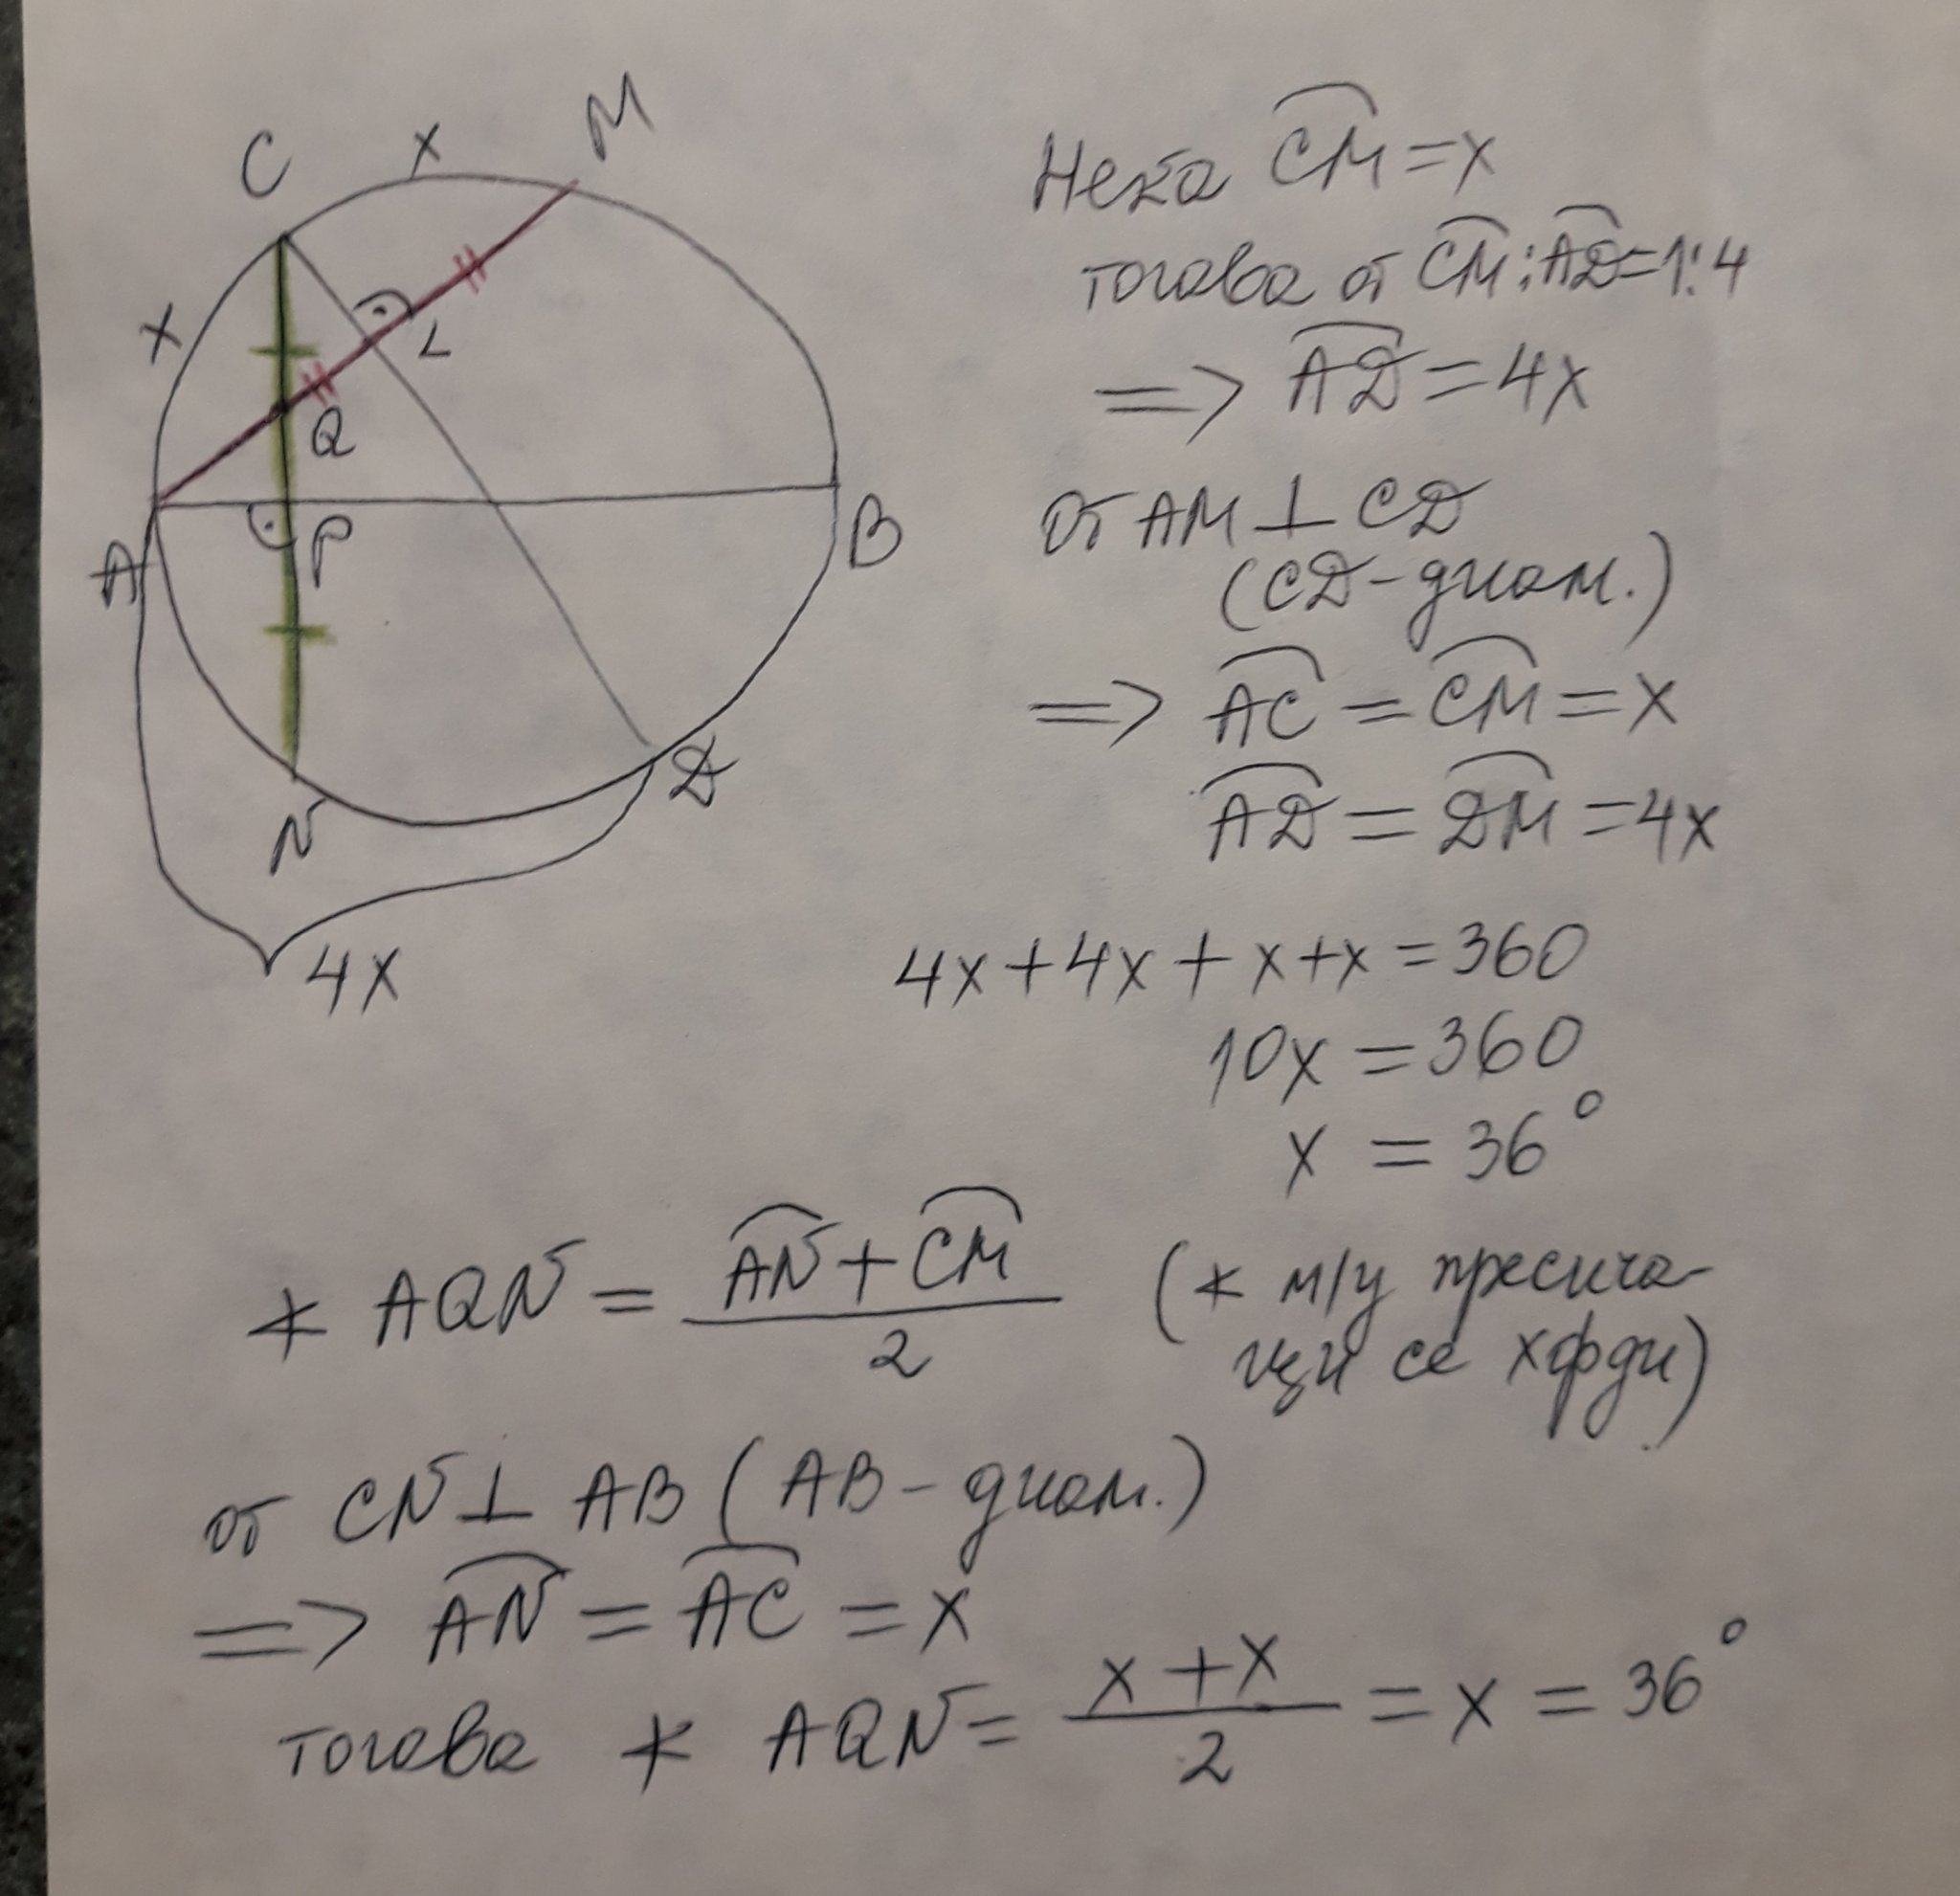 C
x
M
x
L
Q
A
P
B
N
D
4x
Нека CM = x
тогава от CM : AD = 1:4
=> AD = 4x
От AM ⊥ CD
(CD - диам.)
=> AC = CM = x
AD = DM = 4x
4x + 4x + x + x = 360
10x = 360
x = 36°
∢ AQN = (AN + CM)/2 (∢ м/у пресича-
щи се хорди)
от CN ⊥ AB (AB - диам.)
=> AN = AC = x
тогава ∢ AQN = (x + x)/2 = x = 36°